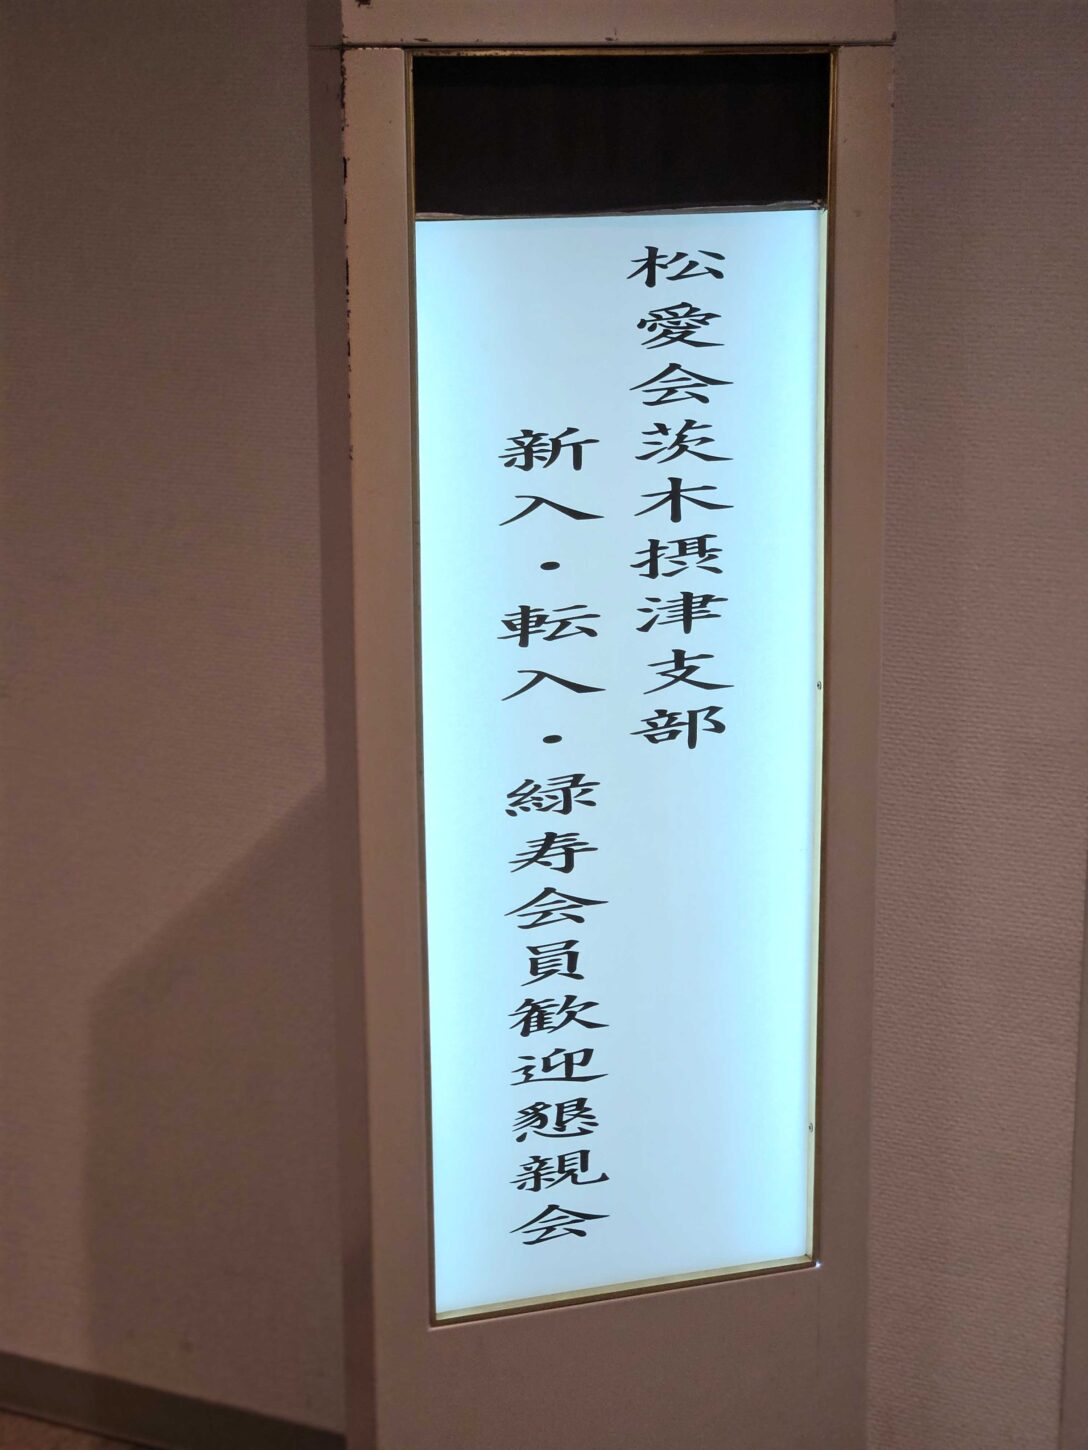 松愛会茨木摂津支部
新入・転入・緑寿会員歓迎懇親会